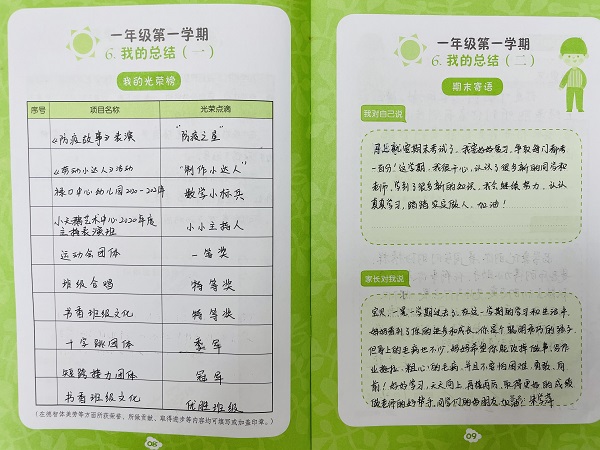 一年级第一学期
6. 我的总结（一）
我的光荣榜
序号 项目名称 光荣点滴
《防疫故事》表演 "防疫之星"
《劳动小达人》活动 "制作小达人"
中心幼儿园2020-2021年 数学小标兵
小天鹅艺术中心2020年度
主持表演班 小小主持人
运动会团体 一等奖
班级合唱 特等奖
书香班级文化 特等奖
十字跳团体 季军
短路接力团体 冠军
书香班级文化 优胜班级
（在德智体美劳等方面所获荣誉、所做贡献、取得进步等内容均可填写或加盖印章。）
08
一年级第一学期
6. 我的总结（二）
期末寄语
我对自己说
马上就要期末考试了，我要好好复习，争取每门都考
一百分！这学期，我很开心，认识了很多新的同学和
老师，学到了很多新的知识，我会继续努力，认认
真真学习，踏踏实实做人，加油！
家长对我说
宝贝，一年一学期过去了，在这一学期的学习和生活中，
妈妈看到了你的进步和成长，你是个聪明乖巧的孩子，
但身上的毛病也不少，妈妈希望你能改掉做事、写作
业拖拉、粗心的毛病，并且不害怕困难，勇敢、向
前！好好学习，天天向上，再接再厉，取得更好的成绩
做老师的好帮手，同学们的好朋友，加油！
09